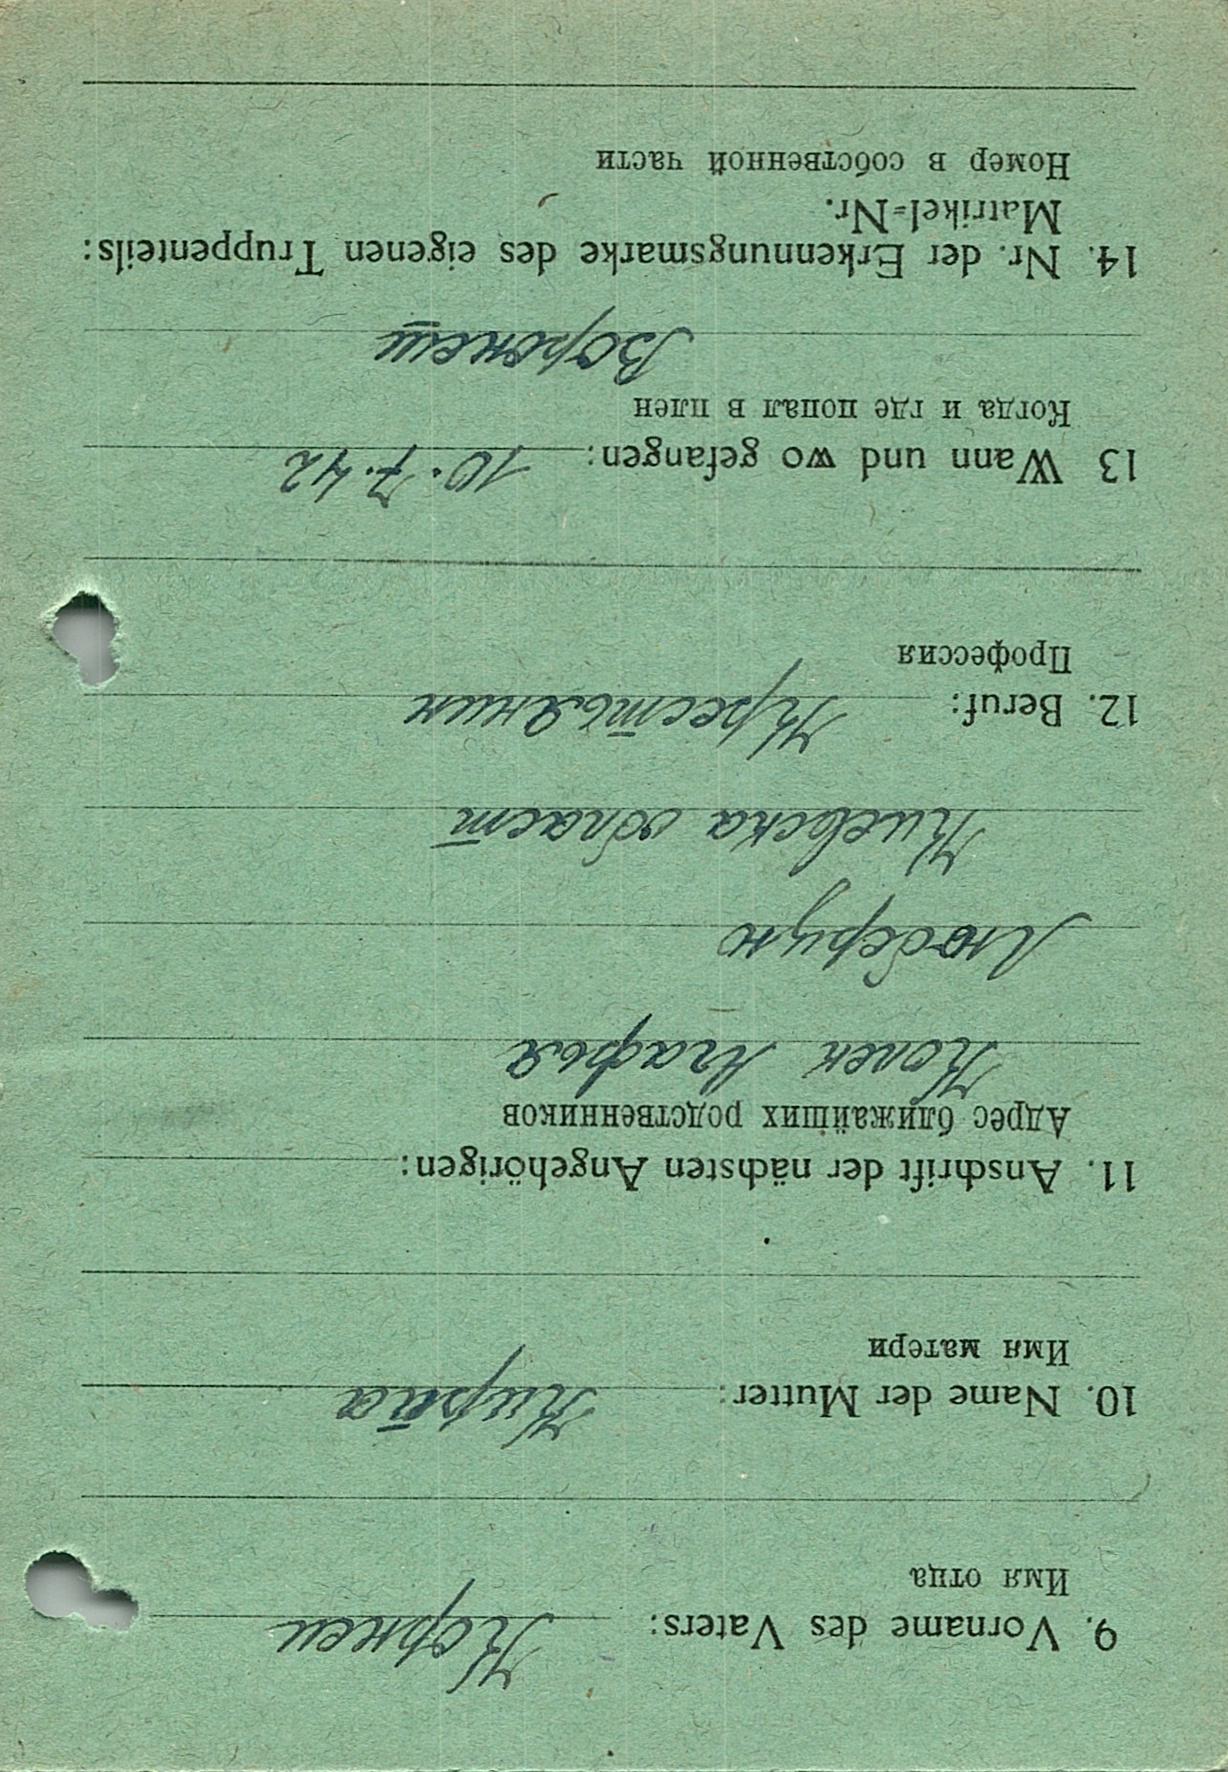 9. Vorname des Vaters: Корнеи
Имя отца
10. Name der Mutter:
Имя матери
11. Anschrift der nächsten Angehörigen:
Адрес ближайших родственников
Агафья
Киевска област
12. Beruf: Крестьянин
Профессия
13 Wann und wo gefangen: 10.7.42
Когда и где попал в плен
Воронеш
14. Nr. der Erkennungsmarke des eigenen Truppenteils:
Matrikel=Nr.
Номер в собственной части